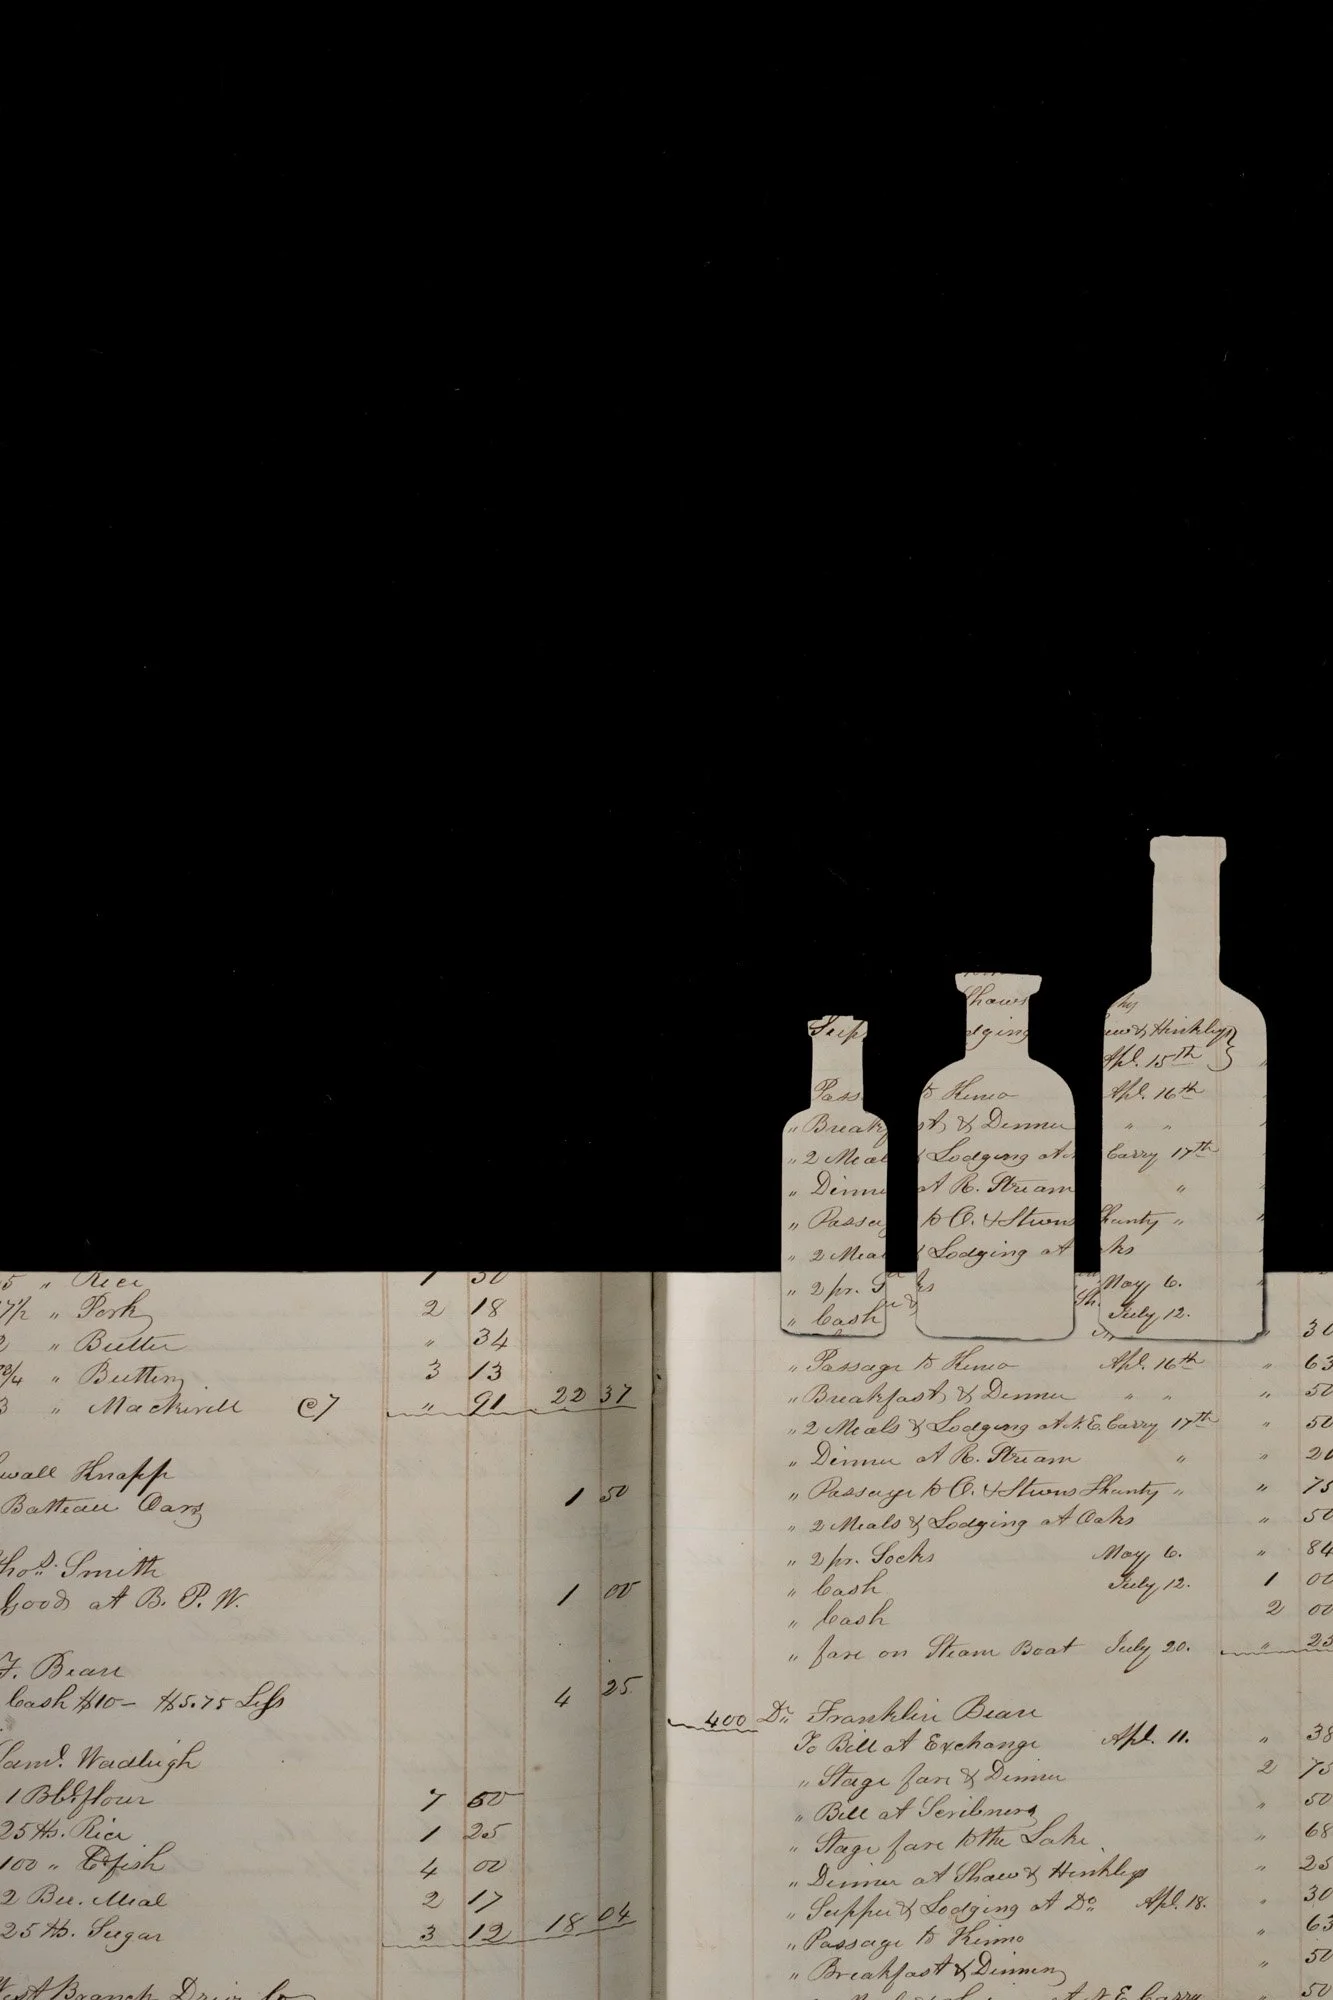 Supp
Pass
" Breakf
" 2 Meal
" Dinne
" Passag
" 2 Mea
" 2 pr. S
" Cash
Shaws
dging
to Kineo
st, & Dinner
& Lodging At
At R. Stream
to O. & Stwns
& Lodging at
ks
hlys
aw & Hinklys
Apl. 15th
Apl. 16th
" "
Carry 17th
"
Shanty "
aks
May 6.
July 12.
5 " Rice 1 50
7 1/2 " Pork 2 18
2 " Butter " 34
3/4 " Buttery 3 13
3 " Mackirell @7 " 91 22 37
wall Knapp
Batteau Oars 1 50
Thos. Smith
Goods at B. P. W. 1 00
F. Bean
Cash $10 - $5.75 Less 4 25
Saml. Wadleigh
1 Bbl flour 7 50
25 lbs. Rice 1 25
100 " C fish 4 00
2 Bu. Meal 2 17
25 lbs. Sugar 3 12 18 04
West Branch Drive to
" 30
" Passage to Kineo Apl. 16th " 63
" Breakfast, & Dinner " " " 50
" 2 Meals & Lodging At N. E. Carry 17th " 50
" Dinner at R. Stream " " 20
" Passage to O. & Stwns Shanty " " 75
" 2 Meals & Lodging at Oaks " 50
" 2 pr. Socks May 6. " 84
" Cash July 12. 1 00
" Cash 2 00
" fare on Steam Boat July 20. " 25
400 Dr. Franklin Bean
To Bill at Exchange Apl. 11. " 38
" Stage fare & Dinner 2 75
" Bill at Scribners " 50
" Stage fare to the Lake " 68
" Dinner at Shaw & Hinklys " 25
" Supper & Lodging at Do Apl. 18. " 30
" Passage to Kineo " 63
" Breakfast & Dinner " 50
at N. E. Carry " 50